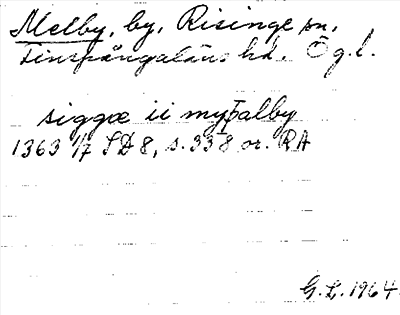 Melby, by, Risinge sn,
Finspångaläns hd. Ög.l.
siggæ ii myþalby
1363 1/7 SD 8, s. 338 or. RA
G.L. 1964.